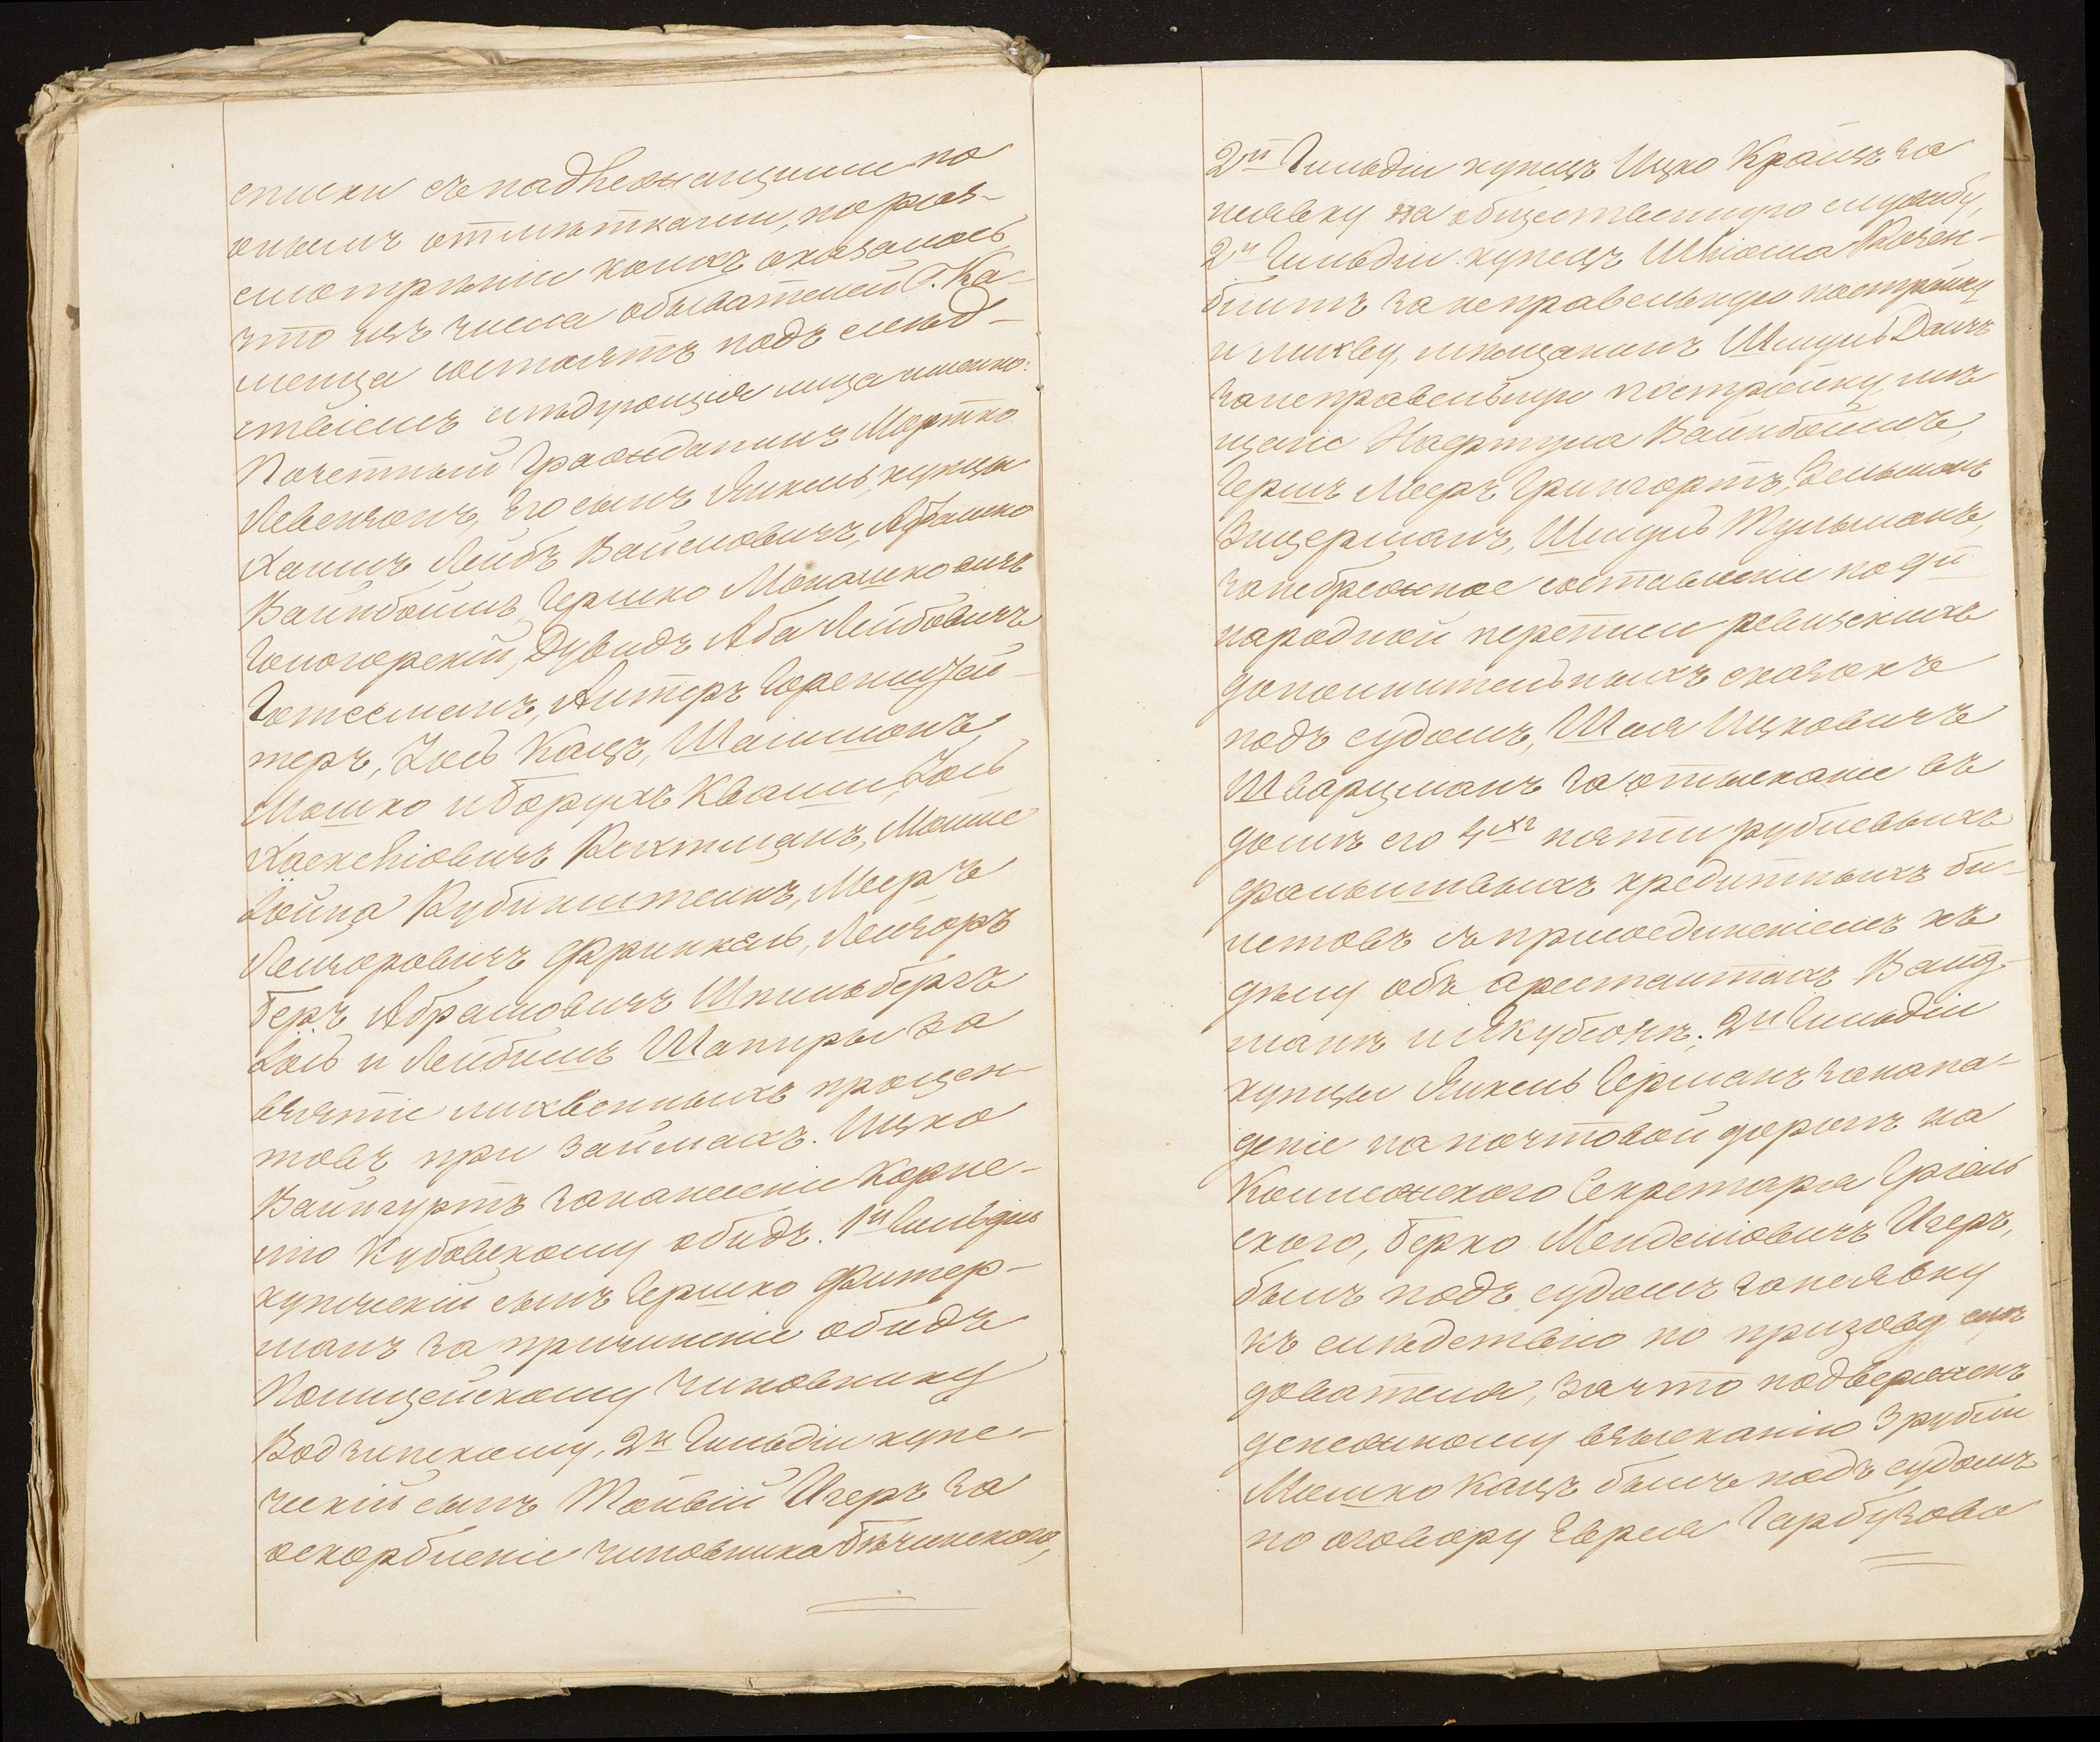 списки съ надлежащими по
онымъ отмѣтками, по раз-
смотрѣніи коихъ оказалось,
что изъ числа обывателей Г. Ка-
менца состоятъ подъ слѣд-
ствіемъ слѣдующія лица именно:
Почетный Гражданинъ Мортко
Левензонъ, его сынъ Янкель, купцы
Хаимъ Лейбъ Вайсмовичъ, Абрамко
Вайнбоимъ, Гершко Моношковичъ
Гоногорскій, Дувидъ Аба Лейбовичъ
Готесманъ, Алтеръ Горенштей-
теръ, Іось Кацъ, Шаллионъ,
Мошко и Борухъ Квашъ, Іось
Хаскеліовичъ Рехтманъ, Мошке
Іойна Рубинштеинъ, Мееръ
Леизоровичъ Френкель, Леизоръ
Беръ Абрамовичъ Шпильбергъ
Іось и Лейбишъ Шапиры за
взятіе лихвенныхъ процен-
товъ при займахъ. Ицко
Вайнгуртъ за нанесеніе Корне-
ту Кубовскому обидъ. 1й Гильдіи
купческій сынъ Гершко Фитер-
манъ за причиненіе обидъ
Полицейскому чиновнику
Водзинскому, 2й Гильдіи купе-
ческій сынъ Тойвій Игеръ за
оскорбленіе чиновника Бѣчинскаго,
2й Гильдіи купецъ Ицко Крайзъ за
неявку на общественную службу,
2й Гильдіи купецъ Шліома Розен-
блитъ за неправельную постройку
и лихву, мѣщанинъ Шмуль Данъ
за неправельную постройку, мѣ-
щане Нафтула Вайнбоимъ,
Гершъ Мееръ Грингортъ, Зельманъ
Зицерманъ, Шмуль Тульманъ,
за небрежное составленіе по 9й
народной переписи ревизскихъ
дополнительныхъ сказокъ
подъ судомъ, Шая Ицковичъ
Шварцманъ за отысканіе въ
домѣ его 4хъ пяти рублевыхъ
фальшивыхъ кредитныхъ би-
летовъ съ присоединеніемъ къ
дѣлу объ арестантахъ Вайд-
манѣ и Якубзонѣ; 2й Гильдіи
купцы Янкель Германъ за напа-
деніе на почтовой дорогѣ на
Коллежскаго Секретаря Гріель
скаго, Берко Менделіовичъ Игеръ,
былъ подъ судомъ за неявку
къ слѣдствію по призову слѣ
дователя, за что подверженъ
денежному взысканію 3 рубли
Мошко Кацъ былъ подъ судомъ
по оговору Еврея Гарбузова